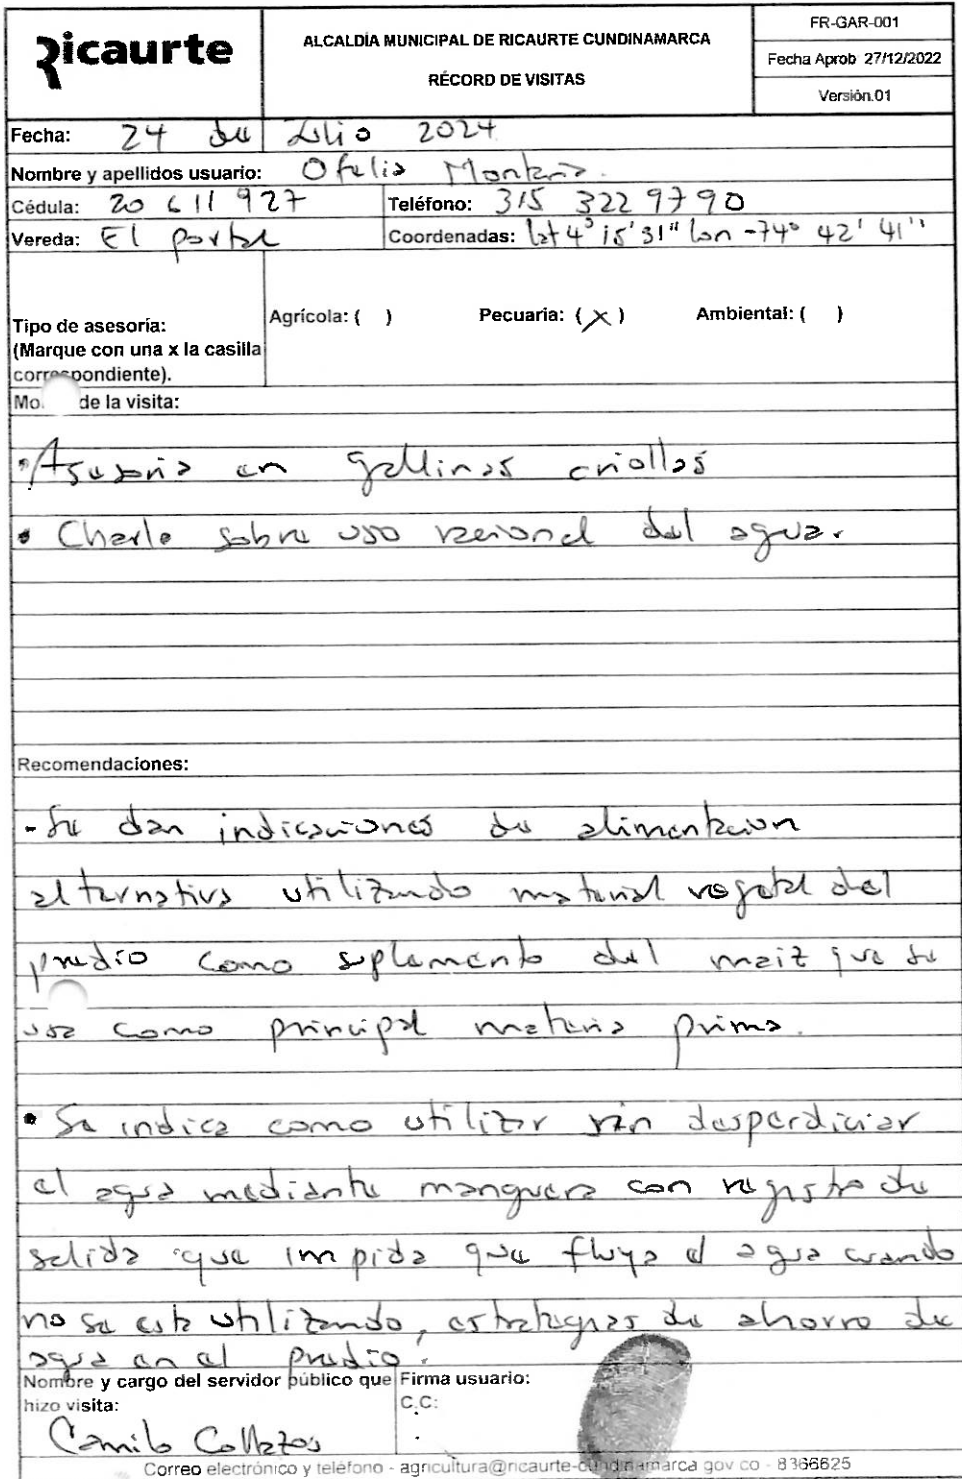 Ricaurte
ALCALDÍA MUNICIPAL DE RICAURTE CUNDINAMARCA
RÉCORD DE VISITAS
FR-GAR-001
Fecha Aprob 27/12/2022
Versión.01
Fecha: 24 de Julio 2024
Nombre y apellidos usuario: Ofelia Montaña.
Cédula: 20 611 927 Teléfono: 315 322 9790
Vereda: El portal Coordenadas: lat 4° 15' 31" lon -74° 42' 41"
Tipo de asesoría:
(Marque con una x la casilla
correspondiente).
Agrícola: ( ) Pecuaria: (X) Ambiental: ( )
Mo de la visita:
• Asesoria en gallinas criollas
• Charla sobre uso racional del agua.
Recomendaciones:
- Se dan indicaciones de alimentacion
alternativa utilizando material vegetal del
predio como suplemento del maiz que se
usa como principal materia prima.
• Se indica como utilizar sin desperdiciar
el agua mediante manguera con registro de
salida que impida que fluya el agua cuando
no se este utilizando, estrategias de ahorro de
agua en el predio.
Nombre y cargo del servidor público que
hizo visita:
Camilo Collazos
Firma usuario:
C.C:
Correo electrónico y teléfono - agricultura@ricaurte-cundinamarca gov co - 8366625